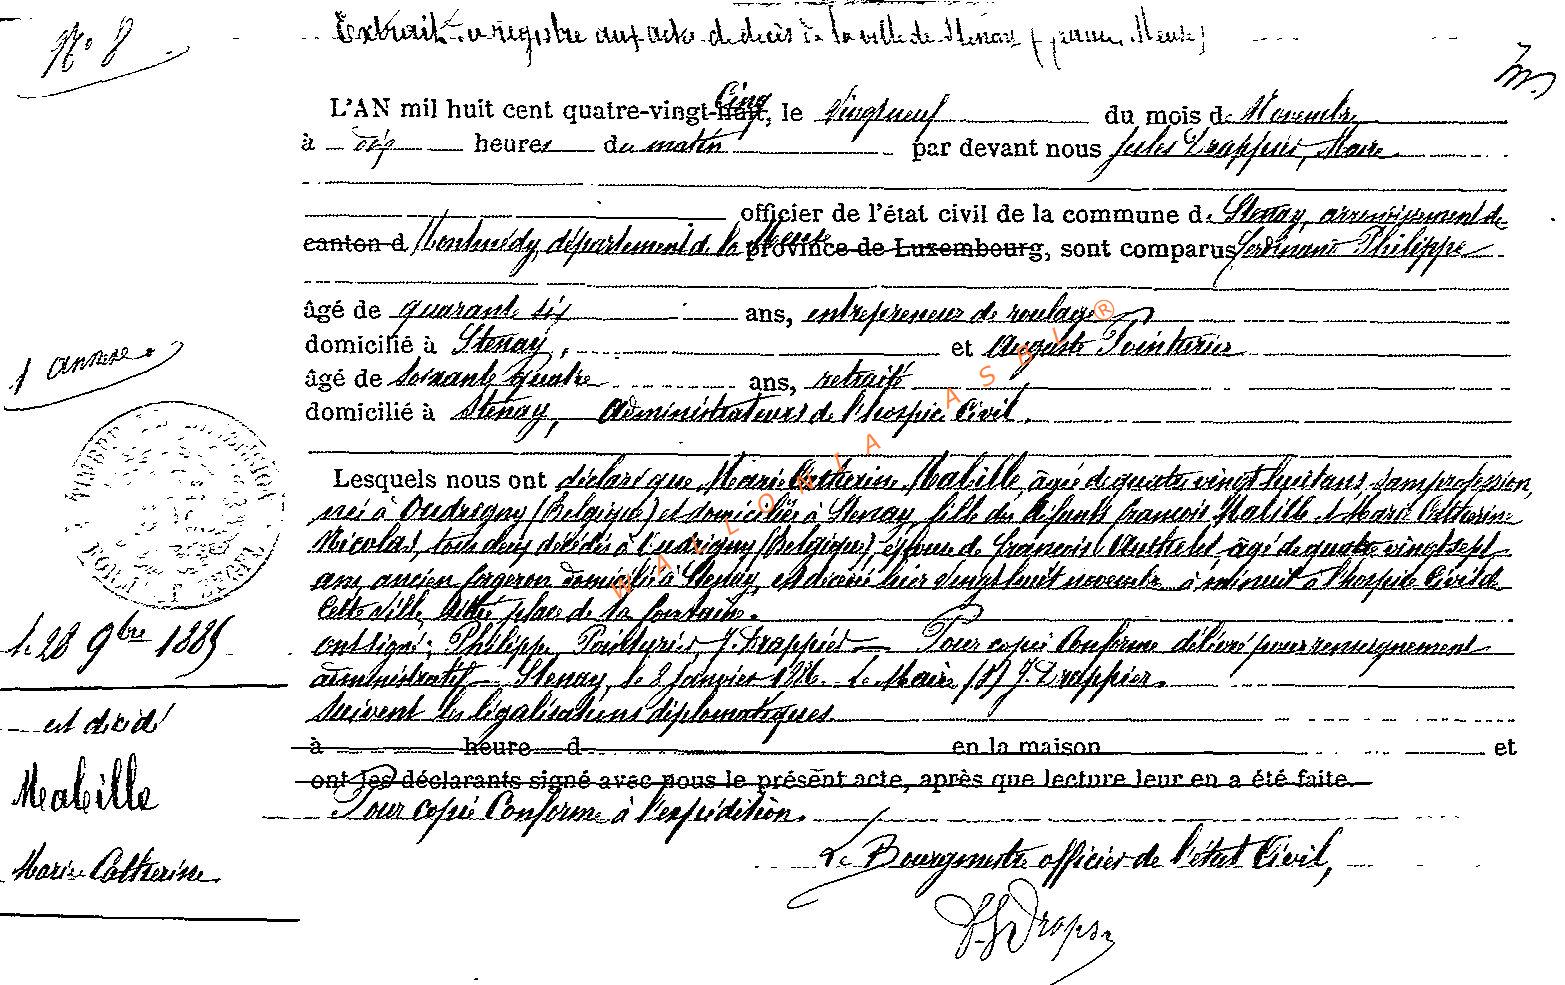 N° 8
Extrait du registre aux actes de décès de la ville de Stenay (France, Meuse)
L'AN mil huit cent quatre-vingt-huit, Cinq le Vingt neuf du mois de Novembre
à dix heures du matin par devant nous Jules Drappier, Maire
officier de l'état civil de la commune de Stenay, arrondissement de
canton d Montmédy, département de la Meuse province de Luxembourg, sont comparus Ferdinand Philippe
âgé de quarante six ans, entrepreneur de roulage
domicilié à Stenay, et Auguste Pointurier
1 annexe.
âgé de soixante quatre ans, retraité
domicilié à Stenay, administrateurs de l'hospice Civil.
WALLONIA ASBL®
Lesquels nous ont déclaré que Marie Catherine Mabille, âgée de quatre vingt huit ans, sans profession,
née à (Belgique) et domiciliée à Stenay, fille des défunts François Mabille et Marie Catherine
Nicolas, tous deux décédés à (Belgique), épouse de François âgé de quatre vingt sept
ans, ancien forgeron domicilié à Stenay, est décédée hier vingt huit novembre à minuit à l'hospice Civil de
Cette ville, sitée place de la fontaine.
ont signé: Philippe, Pointurier, J. Drappier — Pour copie Conforme délivré pour renseignement
administratif — Stenay, le 8 Janvier Le Maire (S) J. Drappier.
Suivent les légalisations diplomatiques.
à heure d en la maison et
ont les déclarants signé avec nous le présent acte, après que lecture leur en a été faite.
Pour copie Conforme à l'expédition.
Le Bourgmestre officier de l'état Civil,
le 28 9bre 1885
est décédé
Mabille
Marie Catherine